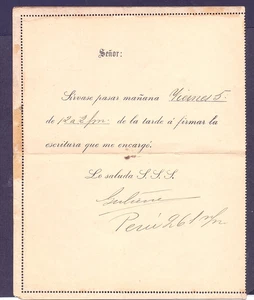 Señor:
Sirvase pasar mañana Viernes 5
de 12 a 2 pm. de la tarde á firmar la
escritura que me encargó.
Le saluda S. S. S.
Perú 261